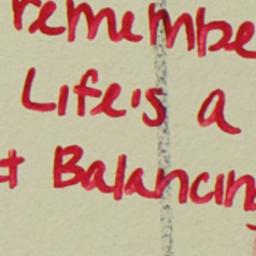 remembe
Life's a
t Balancing